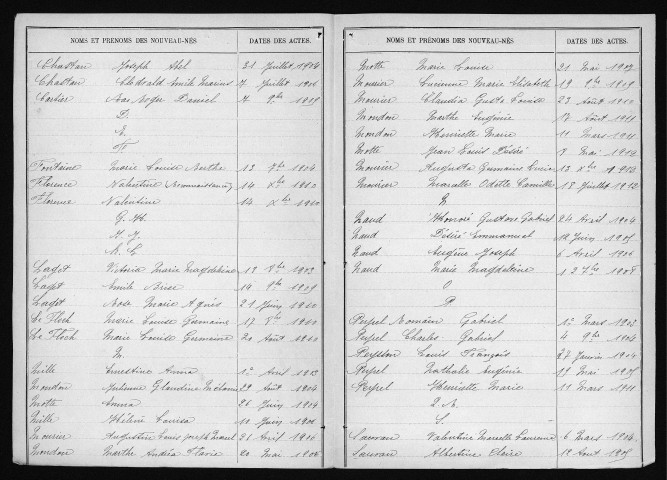 NOMS ET PRÉNOMS DES NOUVEAU-NÉS DATES DES ACTES.
Chastan Joseph Abel 21 Juillet 1904
Chastan Emile Marius 7 Juillet 1906
Cartier Roger Daniel 7 9bre 1909
D.
E.
F.
Fontaine Marie Louise Berthe 12 7bre 1904
Florence Valentine (Reconnaissance) 14 Xbre 1910
Florence Valentine 14 Xbre 1910
G. H.
I. J.
K. L.
Laget Victoria Marie Magdeleine 12 8bre 1903
Laget Emile 14 9bre 1909
Laget Rose Marie Agnès 21 Juin 1910
Le Floch Marie Louise Germaine 17 8bre 1910
Le Floch Marie Louise Germaine 20 Août 1910
M.
Mille Ernestine Anna 1er Avril 1903
Mondon Julienne Claudine 29 Août 1904
Motte Anna 26 Juin 1904
Mille Hélène Louisa 10 Juin 1906
Mourier Augustin Louis Joseph 21 Avril 1906
Mondon Marthe Andréa Flavie 20 Mai 1908
NOMS ET PRÉNOMS DES NOUVEAU-NÉS DATES DES ACTES.
Motte Marie Louise 21 Mai 1909
Mourier Marie Elisabeth 19 9bre 1909
Mourier Claudia Louise 23 Août 1910
Mondon Marthe Eugénie 17 Août 1911
Mondon Henriette Marie 11 Mars 1911
Motte Jean Louis Désiré 7 Mai
Mourier Augusta Germaine 13 Xbre
Mourier Marcelle Odette Camille 18 Juillet 1912
N
Naud Honoré Gustave Gabriel 24 Avril 1904
Naud Désiré Emmanuel Juin 1905
Naud Eugène Joseph 6 Avril 1906
Naud Marie Magdeleine 12 7bre 1908
O
P
Peypel Romain Gabriel 1er Mars 1903
Peypel Charles Gabriel 4 9bre 1904
Peysson Louis François 27 Janvier 1904
Peypel Nathalie Eugénie Mai 1905
Peypel Henriette Marie 11 Mars 1911
Q. R.
S.
Sauvan Valentine Marcelle Laurence 6 Mars 1904
Sauvan Albertine Claire 12 Août 1905